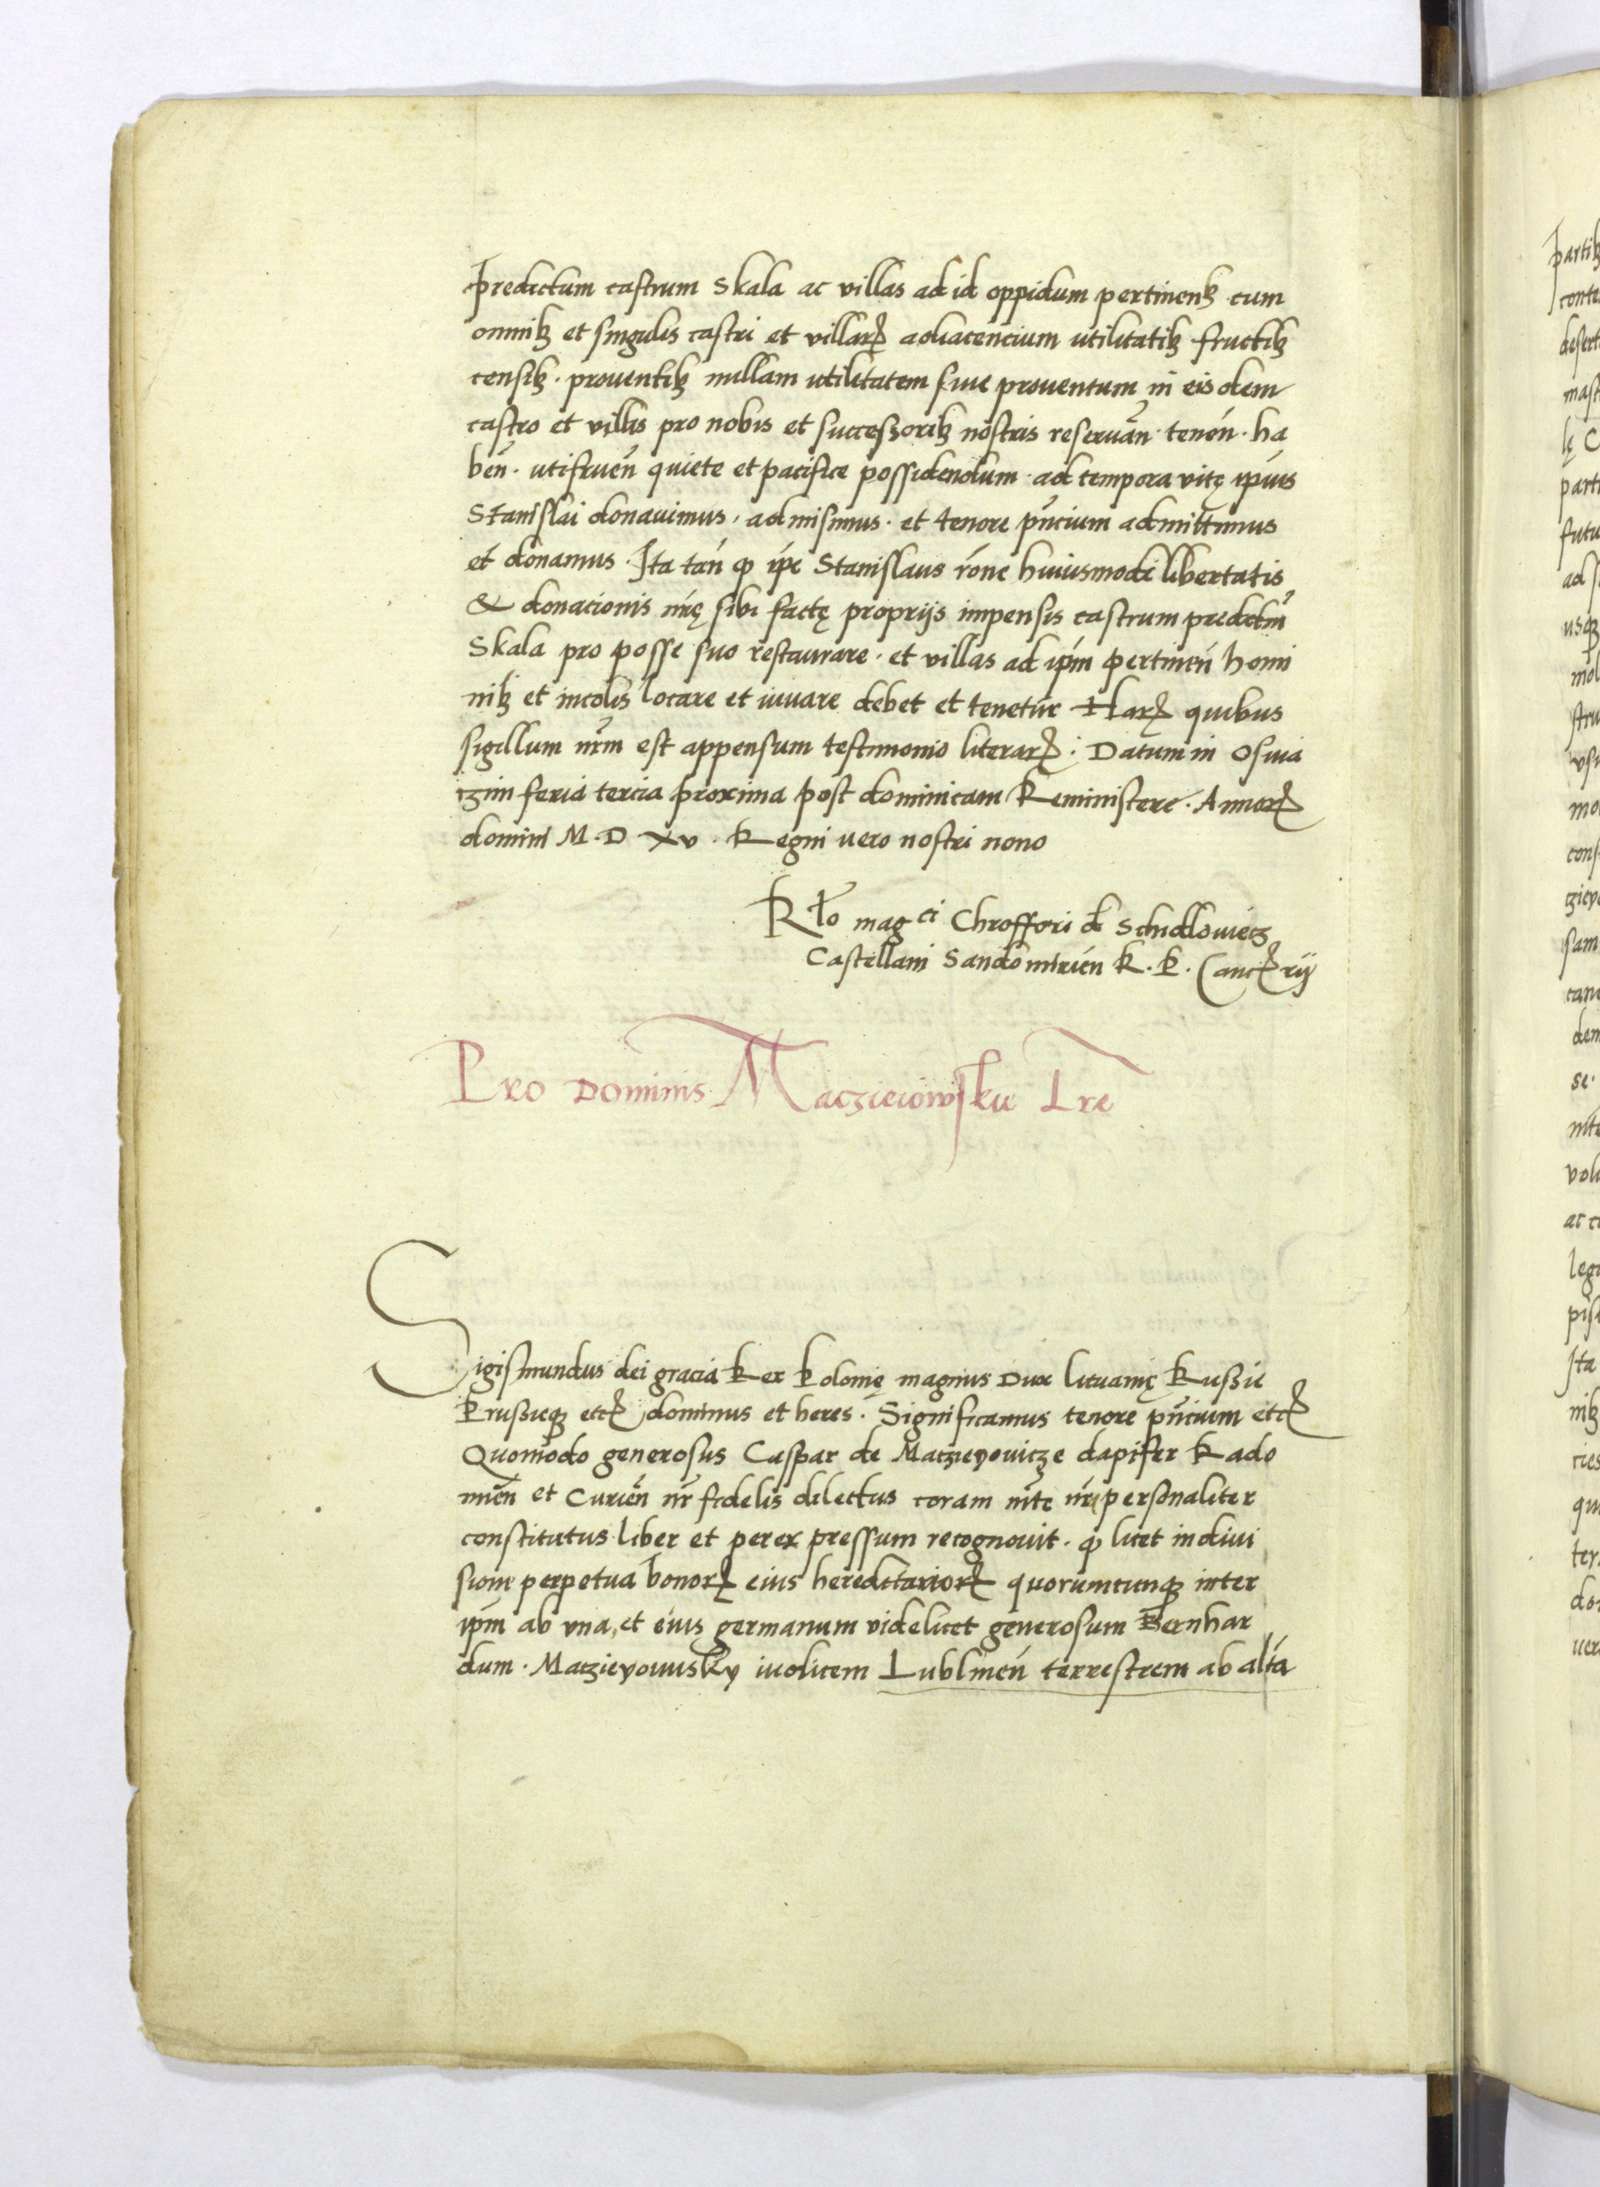 Predictum castrum Skala ac villas ad id oppidum pertinenꝫ cum
omnibꝫ et singulis castri et villarꝝ adiacencium utilitatibꝫ fructibꝫ
censibꝫ · proventibꝫ nullam utilitatem sive proventum in eisdem
castro et villis pro nobis et successoribꝫ nostris reseruan̄ · tenen̄ · ha
ben̄ · utifruen̄ quiete et pacifice possidendum · ad tempora vitę ip̄ius
Stanislai donavimus · admisimus · et tenore pn̄cium admittimus
et donamus · Ita tan̄ ꝙ ip̄e Stanislaus rōne huiusmodi libertatis
& donacionis nr̄ę sibi factę proprijs impensis castrum predictū
Skala pro posse suo restaurare · et villas ad ip̄m pertinen̄ homi
nibꝫ et incolis locare et iuvare debet et tenetur Harꝝ quibus
sigillum nr̄m est appensum testimonio literarꝝ · Datum in Osvia
tzim feria tercia proxima post dominicam Reministere · Annorꝝ
domini M · D xv · Regni vero nostri nono
Rło mag^ci Chrofferi de Schidlowietz
Castellani Sandomirien̄ R · P · Cancꝝrij
Pro Dominis Maczieiowsku Lr̄e
Sigismundus dei gracia Rex Polonię magnus Dux Lituanię Russie
Prussieqꝫ etcꝝ dominus et heres · Significamus tenore pn̄cium etcꝝ
Quomodo generosus Caspar de Maczieyovicze dapifer Rado
mien̄ et Curien̄ nr̄ fidelis dilectus coram m̄te nr̄i personaliter
constitutus liber et per expressum recognovit · ꝙ licet in divi
sione perpetua bonorꝝ eius hereditariorꝝ quorumcunqꝫ inter
ip̄m ab una, et eius germanum videlicet generosum Bernhar
dum · Maczieyowsky iudicem Lublinen̄ terrestrem ab alta